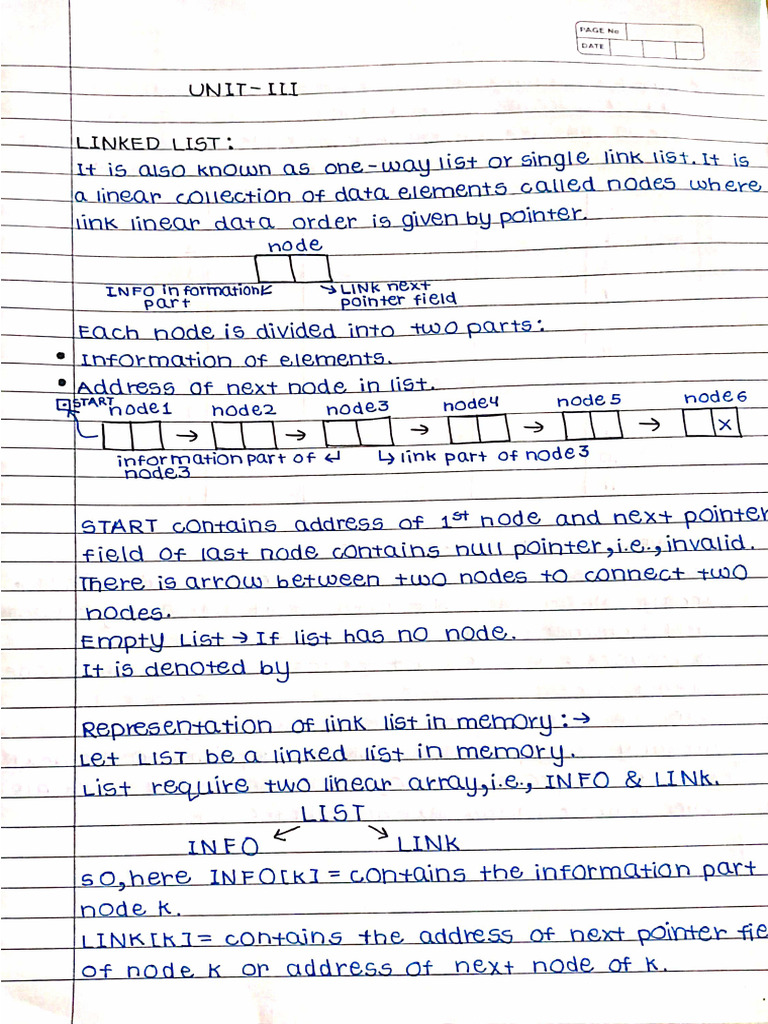 PAGE No
DATE
UNIT-III
LINKED LIST:
It is also known as one-way list or single link list. It is
a linear collection of data elements called nodes where
link linear data order is given by pointer.
node
INFO information part
LINK next pointer field
Each node is divided into two parts:
• Information of elements.
• Address of next node in list.
START node1 node2 node3 node4 node5 node6
X
information part of node3
link part of node3
START contains address of 1st node and next pointer
field of last node contains null pointer, i.e., invalid.
There is arrow between two nodes to connect two
nodes.
Empty List → If list has no node.
It is denoted by
Representation of link list in memory: →
Let LIST be a linked list in memory.
List require two linear array, i.e., INFO & LINK.
LIST
INFO LINK
So, here INFO[K] = contains the information part
node K.
LINK[K] = contains the address of next pointer fie
of node K or address of next node of K.